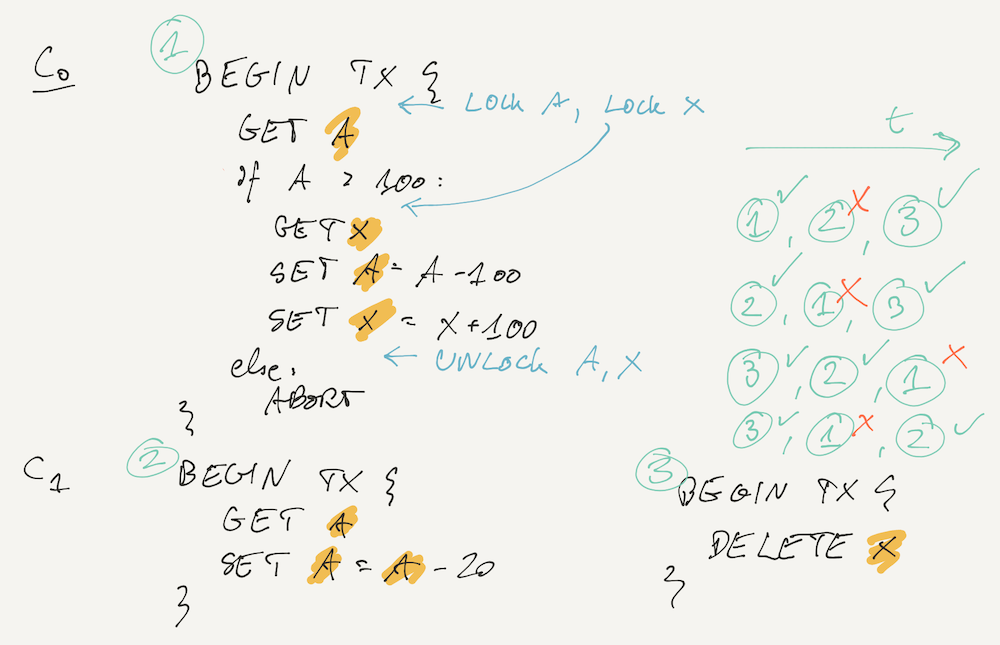 C₀ ① BEGIN TX {
← LOCK A, LOCK X
GET A
If A > 100:
GET X
SET A = A - 100
SET X = X + 100
← UNLOCK A, X
else:
ABORT
}
t
① ✓, ② X, ③ ✓
② ✓, ① X, ③ ✓
③ ✓, ② ✓, ① X
③ ✓, ① X, ② ✓
C₁ ② BEGIN TX {
GET A
SET A = A - 20
}
③ BEGIN TX {
DELETE X
}